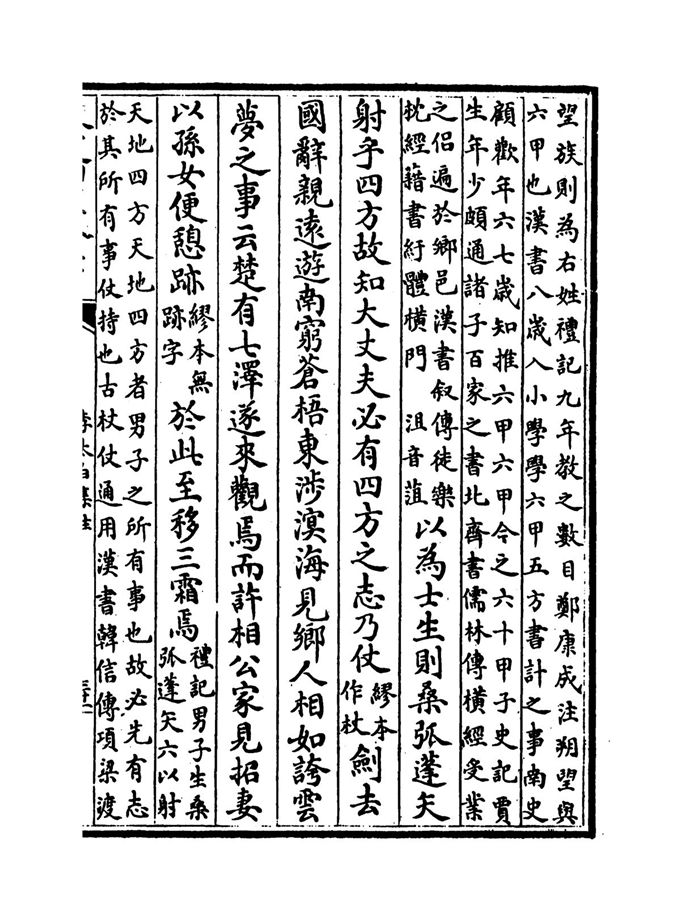 望族則為右姓禮記九年教之數目鄭康成注朔望與
六甲也漢書八歳入小學學六甲五方書計之事南史
顧歡年六七歳知推六甲六甲今之六十甲子史記賈
生年少頗通諸子百家之書北齊書儒林傳横經受業
之侣遍於鄉邑漢書叙傳徒樂
枕經藉書紆體横門　沮音菹
以為士生則桑弧蓬矢
射乎四方故知大丈夫必有四方之志乃仗
繆本
作杖
劍去
國辭親遠遊南窮蒼梧東涉溟海見鄉人相如誇雲
夢之事云楚有七澤遂來觀焉而許相公家見招妻
以孫女便憩跡
繆本無
跡字
於此至移三霜焉
禮記男子生桑
弧蓬矢六以射
天地四方天地四方者男子之所有事也故必先有志
於其所有事仗持也古杖仗通用漢書韓信傳項梁渡
李太白集注